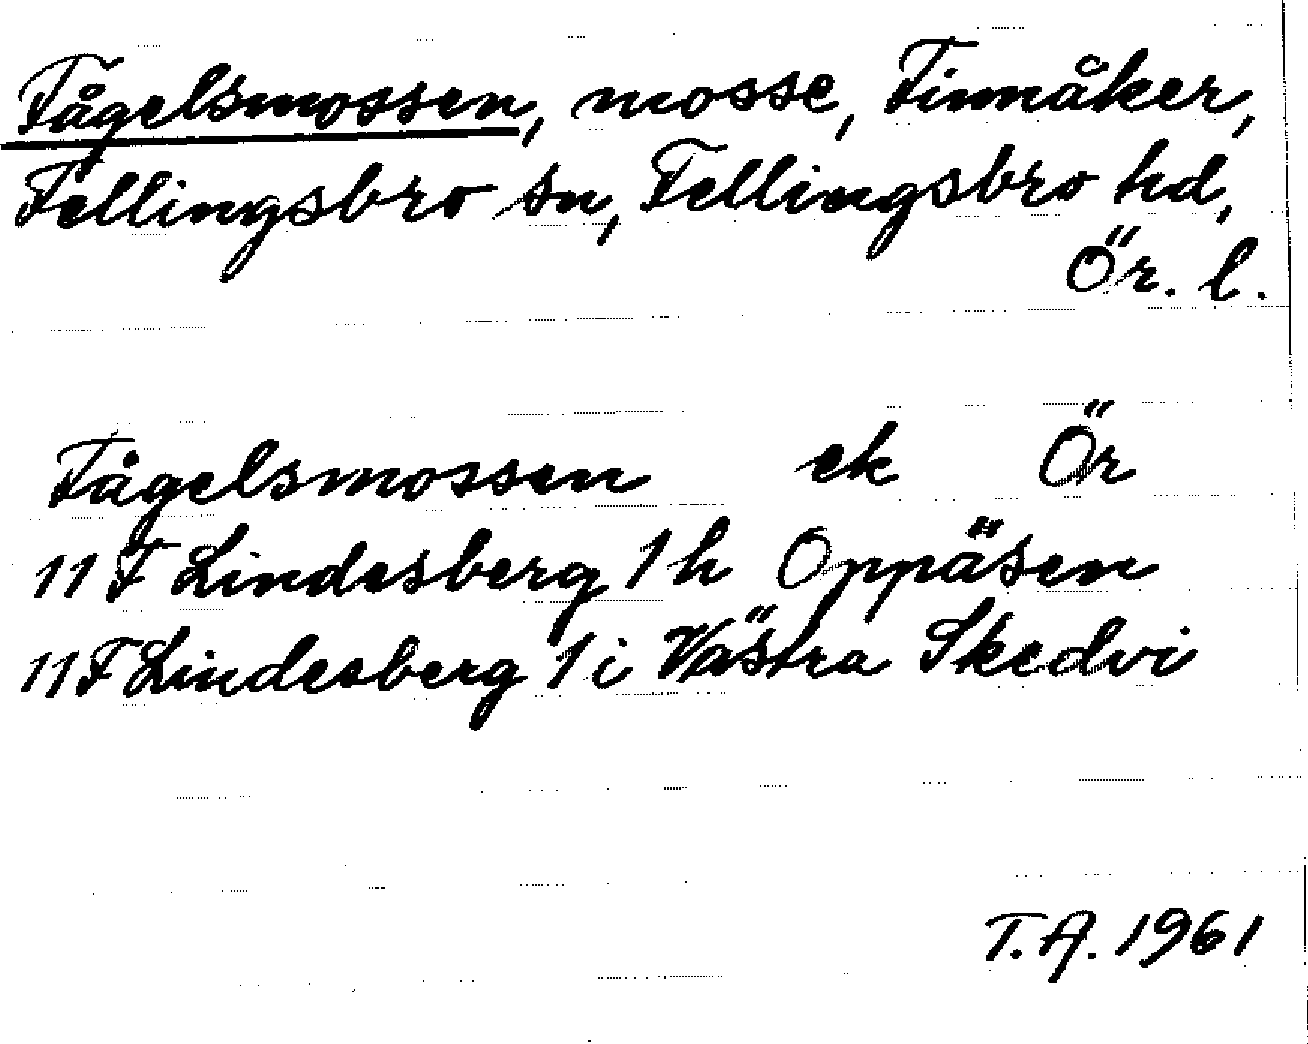 Fågelsmossen, mosse, Finnåker,
Fellingsbro sn, Fellingsbro hd,
Ör. l.
Fågelsmossen ek Ör
11 F Lindesberg 1 h Oppäsen
11 F Lindesberg 1 i Västra Skedvi
T.A. 1961